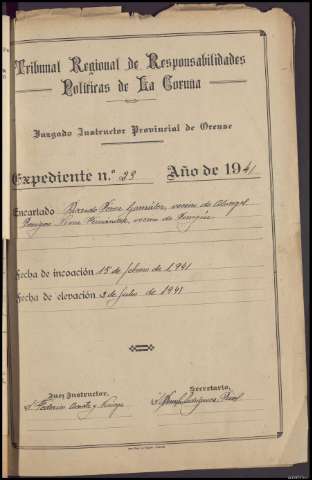 Tribunal Regional de Responsabilidades
Políticas de La Coruña
Juzgado Instructor Provincial de Orense
Expediente n.º 29 Año de 1941
Encartado Ricardo Pérez González, vecino de
Pérez Fernández, vecino de
Fecha de incoación 15 de febrero de 1941
Fecha de elevación 3 de Julio de 1941
Juez Instructor, Secretario,
Federico